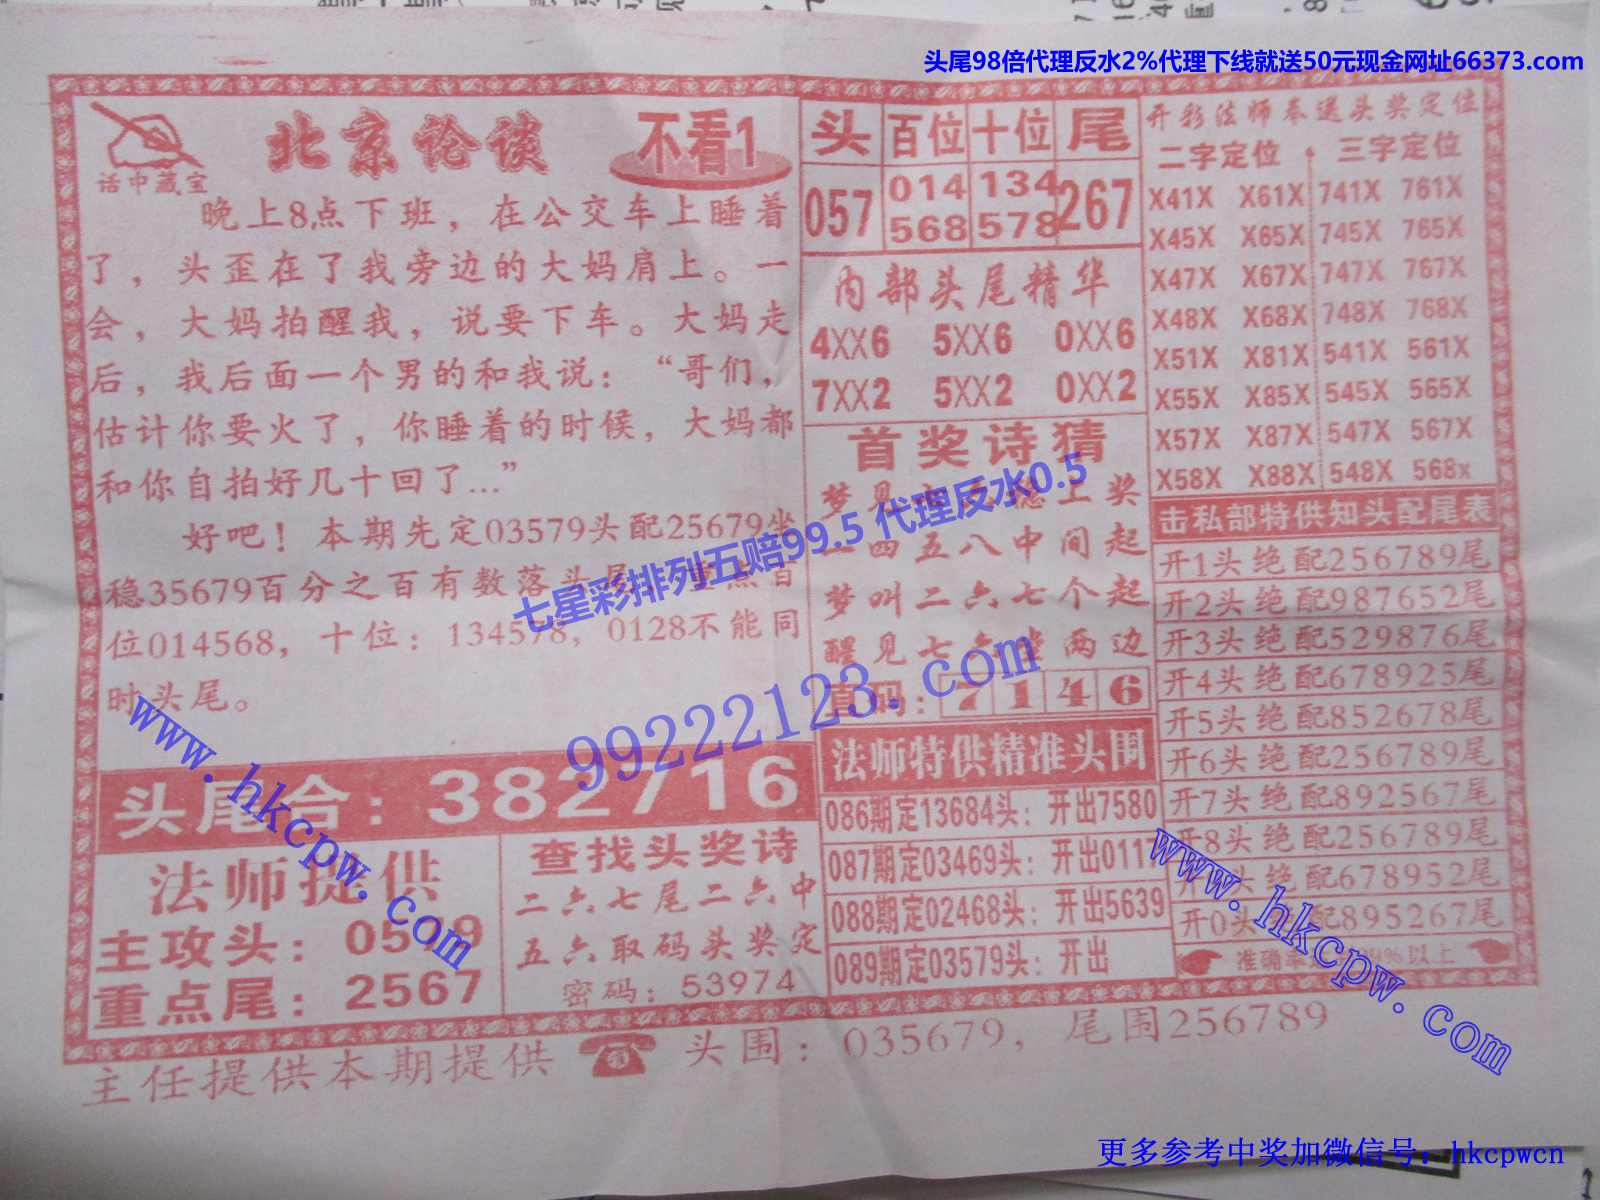 头尾98倍代理反水2%代理下线就送50元现金网址66373.com
话中藏宝
北京论谈
不看1
晚上8点下班，在公交车上睡着
了，头歪在了我旁边的大妈肩上。一
会，大妈拍醒我，说要下车。大妈走
后，我后面一个男的和我说：“哥们，
估计你要火了，你睡着的时候，大妈都
和你自拍好几十回了...”
好吧！本期先定03579头配25679坐
稳35679百分之百有数落头尾，重点百
位014568，十位：134578，0128不能同
时头尾。
头尾合：382716
法师提供
主攻头：0579
重点尾：2567
查找头奖诗
二六七尾二六中
五六取码头奖定
密码：53974
头 百位 十位 尾
057 014 134 267
568 578
内部头尾精华
4XX6 5XX6 0XX6
7XX2 5XX2 0XX2
首奖诗猜
梦见 上奖
一四五八中间起
梦叫二六七个起
醒见七六坐两边
直码：7 1 4 6
法师特供精准头围
086期定13684头：开出7580
087期定03469头：开出0117
088期定02468头：开出5639
089期定03579头：开出
开彩法师奉送头奖定位
二字定位 三字定位
X41X X61X 741X 761X
X45X X65X 745X 765X
X47X X67X 747X 767X
X48X X68X 748X 768X
X51X X81X 541X 561X
X55X X85X 545X 565X
X57X X87X 547X 567X
X58X X88X 548X 568x
击私部特供知头配尾表
开1头绝配256789尾
开2头绝配987652尾
开3头绝配529876尾
开4头绝配678925尾
开5头绝配852678尾
开6头绝配256789尾
开7头绝配892567尾
开8头绝配256789尾
开 头绝配678952尾
开0头 配895267尾
准确率 9%以上
主任提供本期提供 头围：035679，尾围256789
七星彩排列五赔99.5 代理反水0.5
99222123.com
www.hkcpw.com
www.hkcpw.com
更多参考中奖加微信号：hkcpwcn